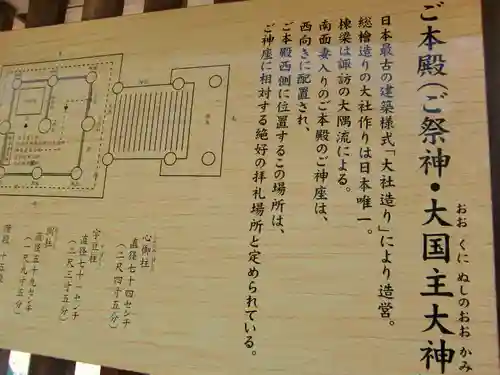 ご本殿（ご祭神・大国主大神
おお くに ぬしのおお かみ
日本最古の建築様式「大社造り」により造営。
総檜造りの大社作りは日本唯一。
棟梁は諏訪の大隅流による。
南面妻入りのご本殿のご神座は、
西向きに配置され、
ご本殿西側に位置するこの場所は、
ご神座に相対する絶好の拝礼場所と定められている。
心御柱
直径七十四センチ
（二尺四寸五分）
宇豆柱
直径七十一センチ
（二尺三寸五分）
側柱
直径五十九センチ
（一尺九寸五分）
階段 十五段